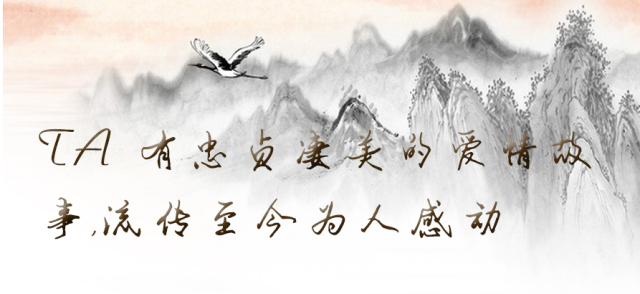 TA 有忠贞凄美的爱情故
事,流传至今为人感动